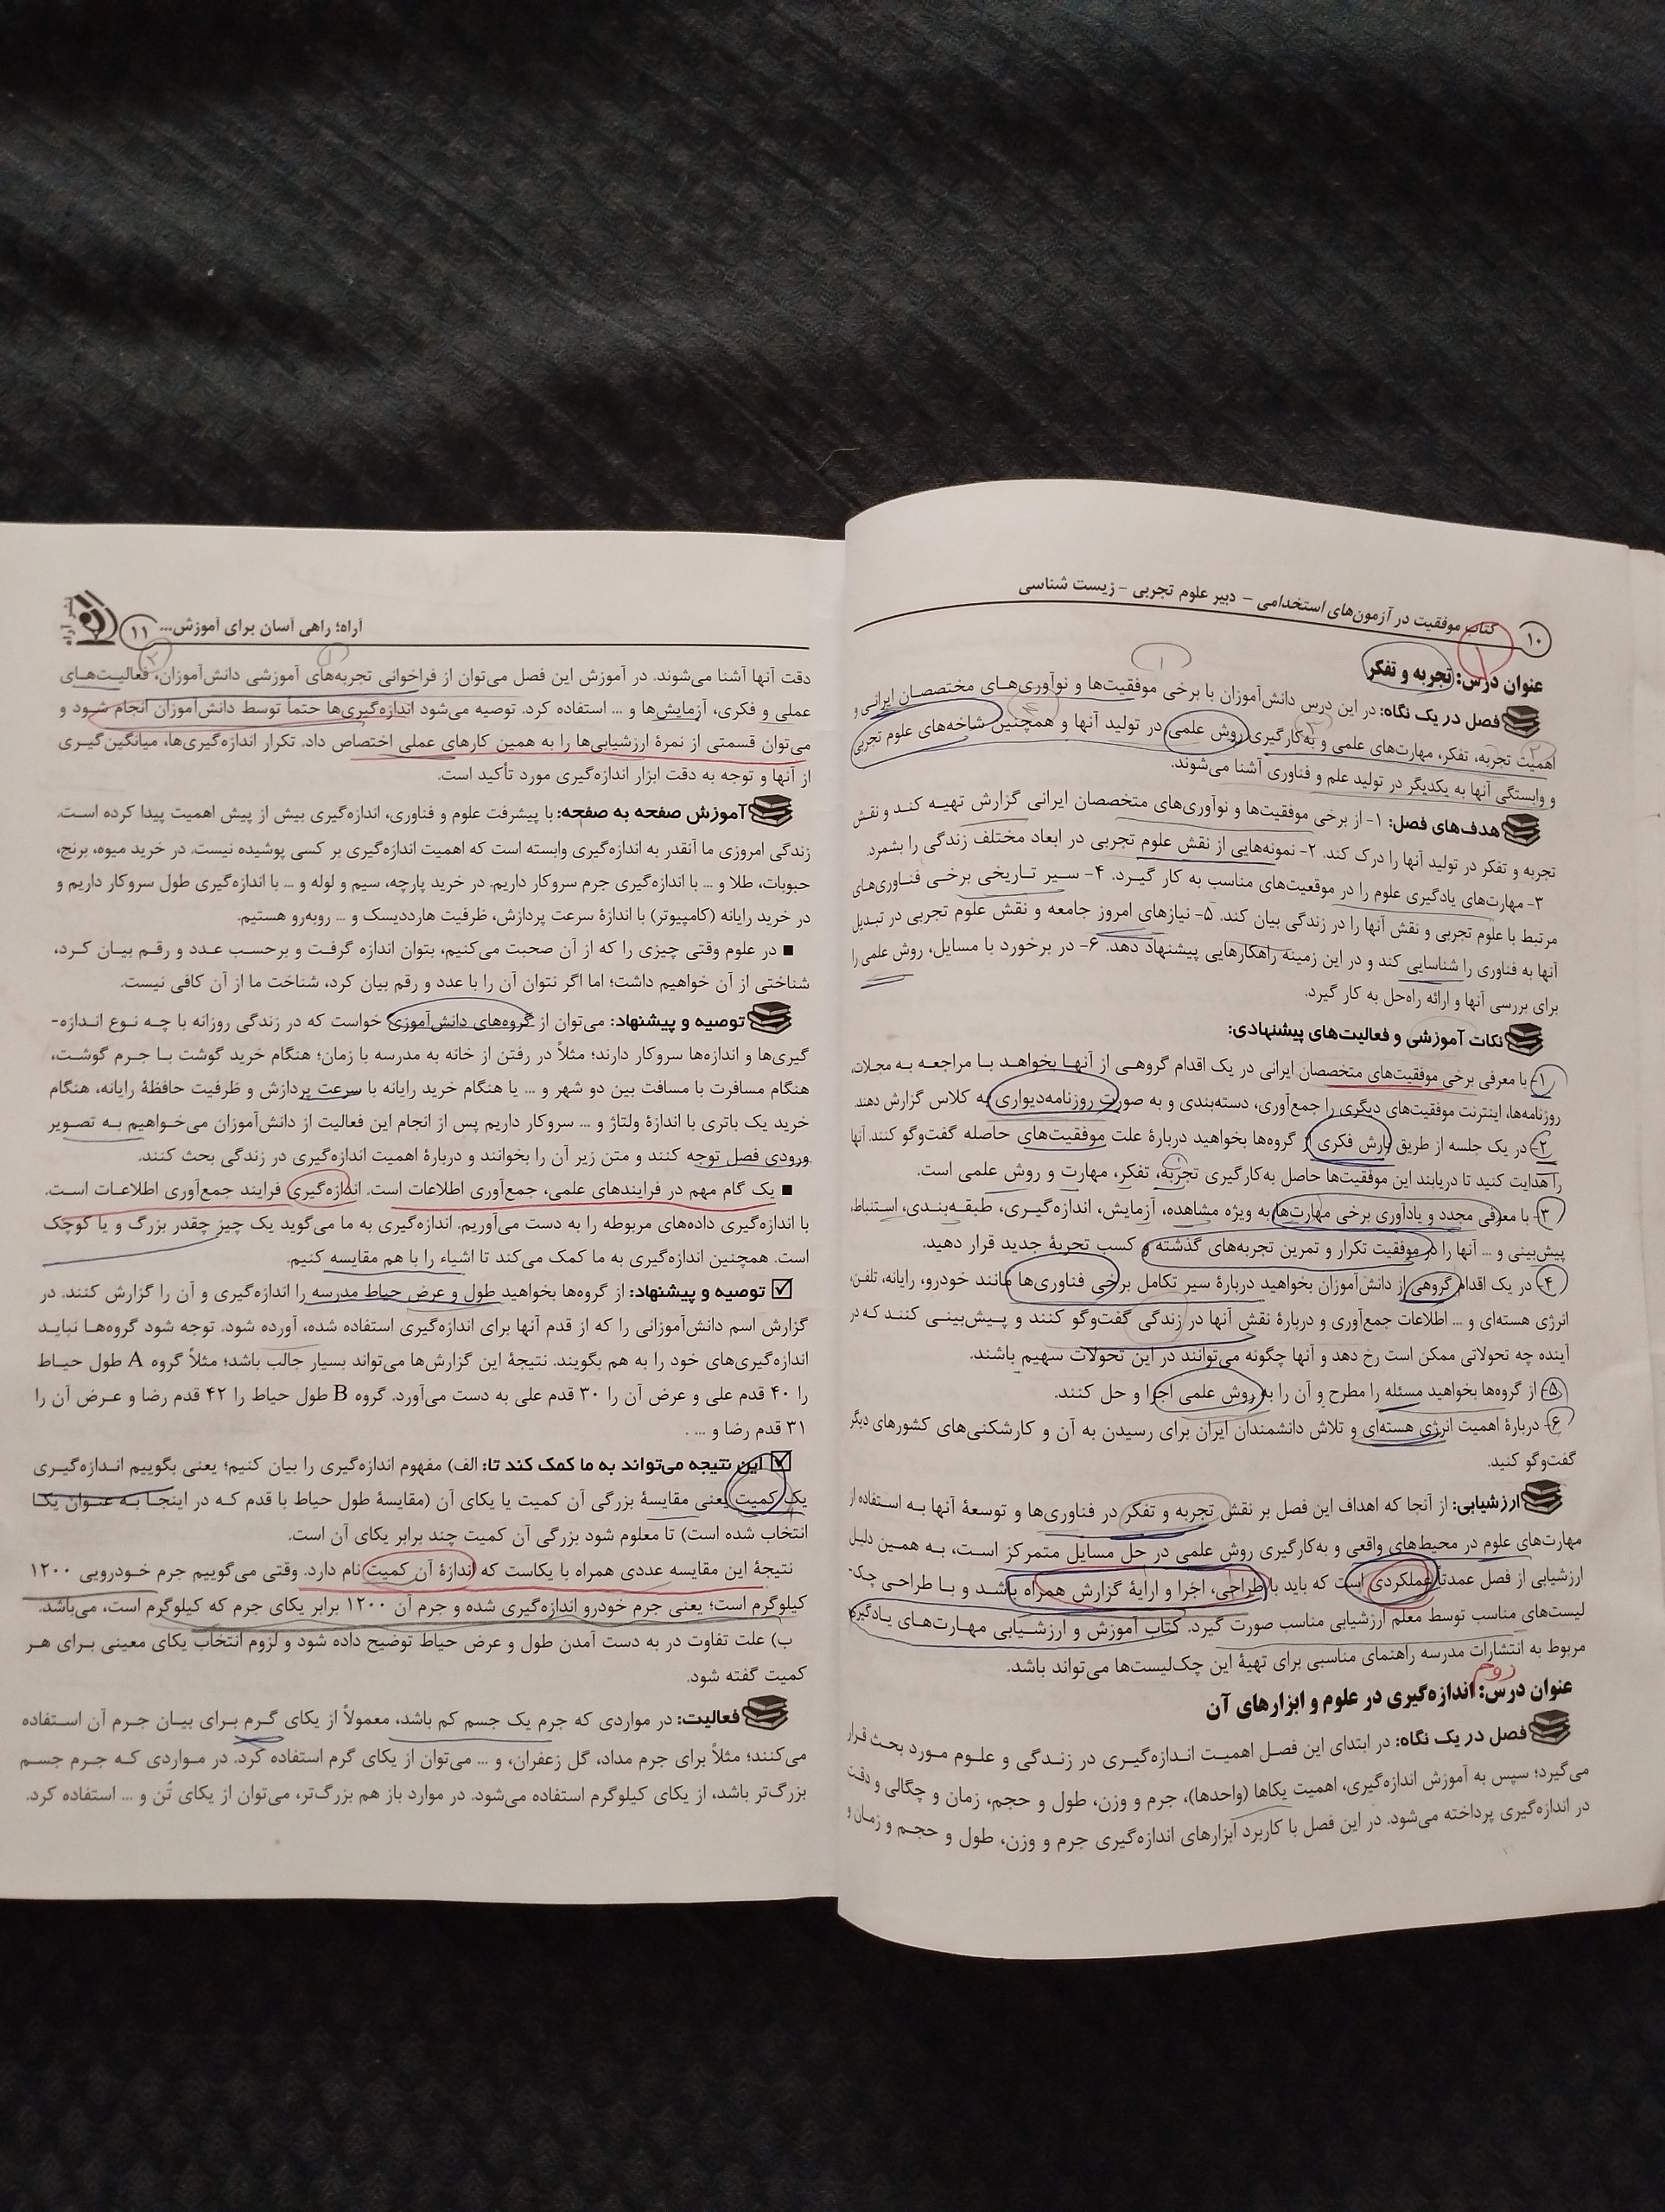 ۱۰
کتاب موفقیت در آزمون‌های استخدامی – دبیر علوم تجربی – زیست شناسی
عنوان درس: تجربه و تفکر
فصل در یک نگاه: در این درس دانش‌آموزان با برخی موفقیت‌ها و نوآوری‌های مختصصان ایرانی و
اهمیت تجربه، تفکر، مهارت‌های علمی و به‌کارگیری روش علمی در تولید آنها و همچنین شاخه‌های علوم تجربی
و وابستگی آنها به یکدیگر در تولید علم و فناوری آشنا می‌شوند.
هدف‌های فصل: ۱- از برخی موفقیت‌ها و نوآوری‌های متخصصان ایرانی گزارش تهیه کند و نقش
تجربه و تفکر در تولید آنها را درک کند. ۲- نمونه‌هایی از نقش علوم تجربی در ابعاد مختلف زندگی را بشمرد.
۳- مهارت‌های یادگیری علوم را در موقعیت‌های مناسب به کار گیرد. ۴- سیر تاریخی برخی فناوری‌های
مرتبط با علوم تجربی و نقش آنها را در زندگی بیان کند. ۵- نیازهای امروز جامعه و نقش علوم تجربی در تبدیل
آنها به فناوری را شناسایی کند و در این زمینه راهکارهایی پیشنهاد دهد. ۶- در برخورد با مسایل، روش علمی را
برای بررسی آنها و ارائه راه‌حل به کار گیرد.
نکات آموزشی و فعالیت‌های پیشنهادی:
۱- با معرفی برخی موفقیت‌های متخصصان ایرانی در یک اقدام گروهی از آنها بخواهد با مراجعه به مجلات،
روزنامه‌ها، اینترنت موفقیت‌های دیگری را جمع‌آوری، دسته‌بندی و به صورت روزنامه‌دیواری به کلاس گزارش دهند.
۲- در یک جلسه از طریق بارش فکری از گروه‌ها بخواهید دربارهٔ علت موفقیت‌های حاصله گفت‌وگو کنند. آنها
را هدایت کنید تا دریابند این موفقیت‌ها حاصل به‌کارگیری تجربه، تفکر، مهارت و روش علمی است.
۳- با معرفی مجدد و یادآوری برخی مهارت‌ها به ویژه مشاهده، آزمایش، اندازه‌گیری، طبقه‌بندی، استنباط،
پیش‌بینی و ... آنها را در موفقیت تکرار و تمرین تجربه‌های گذشته و کسب تجربهٔ جدید قرار دهید.
۴- در یک اقدام گروهی از دانش‌آموزان بخواهید دربارهٔ سیر تکامل برخی فناوری‌ها مانند خودرو، رایانه، تلفن،
انرژی هسته‌ای و ... اطلاعات جمع‌آوری و دربارهٔ نقش آنها در زندگی گفت‌وگو کنند و پیش‌بینی کنند که در
آینده چه تحولاتی ممکن است رخ دهد و آنها چگونه می‌توانند در این تحولات سهیم باشند.
۵- از گروه‌ها بخواهید مسئله را مطرح و آن را به روش علمی اجرا و حل کنند.
۶- دربارهٔ اهمیت انرژی هسته‌ای و تلاش دانشمندان ایران برای رسیدن به آن و کارشکنی‌های کشورهای دیگر
گفت‌وگو کنید.
ارزشیابی: از آنجا که اهداف این فصل بر نقش تجربه و تفکر در فناوری‌ها و توسعهٔ آنها به استفاده از
مهارت‌های علوم در محیط‌های واقعی و به‌کارگیری روش علمی در حل مسایل متمرکز است، به همین دلیل
ارزشیابی از فصل عمدتاً عملکردی است که باید با طراحی، اجرا و ارایهٔ گزارش همراه باشد و با طراحی چک-
لیست‌های مناسب توسط معلم ارزشیابی مناسب صورت گیرد. کتاب آموزش و ارزشیابی مهارت‌های یادگیری
مربوط به انتشارات مدرسه راهنمای مناسبی برای تهیهٔ این چک‌لیست‌ها می‌تواند باشد.
دوم
عنوان درس: اندازه‌گیری در علوم و ابزارهای آن
فصل در یک نگاه: در ابتدای این فصل اهمیت اندازه‌گیری در زندگی و علوم مورد بحث قرار
می‌گیرد؛ سپس به آموزش اندازه‌گیری، اهمیت یکاها (واحدها)، جرم و وزن، طول و حجم، زمان و چگالی و دقت
در اندازه‌گیری پرداخته می‌شود. در این فصل با کاربرد ابزارهای اندازه‌گیری جرم و وزن، طول و حجم و زمان و
آراه؛ راهی آسان برای آموزش...
۱۱
دقت آنها آشنا می‌شوند. در آموزش این فصل می‌توان از فراخوانی تجربه‌های آموزشی دانش‌آموزان، فعالیت‌های
عملی و فکری، آزمایش‌ها و ... استفاده کرد. توصیه می‌شود اندازه‌گیری‌ها حتماً توسط دانش‌آموزان انجام شود و
می‌توان قسمتی از نمرهٔ ارزشیابی‌ها را به همین کارهای عملی اختصاص داد. تکرار اندازه‌گیری‌ها، میانگین‌گیری
از آنها و توجه به دقت ابزار اندازه‌گیری مورد تأکید است.
آموزش صفحه به صفحه: با پیشرفت علوم و فناوری، اندازه‌گیری بیش از پیش اهمیت پیدا کرده است.
زندگی امروزی ما آنقدر به اندازه‌گیری وابسته است که اهمیت اندازه‌گیری بر کسی پوشیده نیست. در خرید میوه، برنج،
حبوبات، طلا و ... با اندازه‌گیری جرم سروکار داریم. در خرید پارچه، سیم و لوله و ... با اندازه‌گیری طول سروکار داریم و
در خرید رایانه (کامپیوتر) با اندازهٔ سرعت پردازش، ظرفیت هارددیسک و ... روبه‌رو هستیم.
■ در علوم وقتی چیزی را که از آن صحبت می‌کنیم، بتوان اندازه گرفت و برحسب عدد و رقم بیان کرد،
شناختی از آن خواهیم داشت؛ اما اگر نتوان آن را با عدد و رقم بیان کرد، شناخت ما از آن کافی نیست.
توصیه و پیشنهاد: می‌توان از گروه‌های دانش‌آموزی خواست که در زندگی روزانه با چه نوع اندازه-
گیری‌ها و اندازه‌ها سروکار دارند؛ مثلاً در رفتن از خانه به مدرسه با زمان؛ هنگام خرید گوشت با جرم گوشت،
هنگام مسافرت با مسافت بین دو شهر و ... یا هنگام خرید رایانه با سرعت پردازش و ظرفیت حافظهٔ رایانه، هنگام
خرید یک باتری با اندازهٔ ولتاژ و ... سروکار داریم پس از انجام این فعالیت از دانش‌آموزان می‌خواهیم به تصویر
ورودی فصل توجه کنند و متن زیر آن را بخوانند و دربارهٔ اهمیت اندازه‌گیری در زندگی بحث کنند.
■ یک گام مهم در فرایندهای علمی، جمع‌آوری اطلاعات است. اندازه‌گیری فرایند جمع‌آوری اطلاعات است.
با اندازه‌گیری داده‌های مربوطه را به دست می‌آوریم. اندازه‌گیری به ما می‌گوید یک چیز چقدر بزرگ و یا کوچک
است. همچنین اندازه‌گیری به ما کمک می‌کند تا اشیاء را با هم مقایسه کنیم.
☑ توصیه و پیشنهاد: از گروه‌ها بخواهید طول و عرض حیاط مدرسه را اندازه‌گیری و آن را گزارش کنند. در
گزارش اسم دانش‌آموزانی را که از قدم آنها برای اندازه‌گیری استفاده شده، آورده شود. توجه شود گروه‌ها نباید
اندازه‌گیری‌های خود را به هم بگویند. نتیجهٔ این گزارش‌ها می‌تواند بسیار جالب باشد؛ مثلاً گروه A طول حیاط
را ۴۰ قدم علی و عرض آن را ۳۰ قدم علی به دست می‌آورد. گروه B طول حیاط را ۴۲ قدم رضا و عرض آن را
۳۱ قدم رضا و ... .
☑ این نتیجه می‌تواند به ما کمک کند تا: الف) مفهوم اندازه‌گیری را بیان کنیم؛ یعنی بگوییم اندازه‌گیری
یک کمیت یعنی مقایسهٔ بزرگی آن کمیت یا یکای آن (مقایسهٔ طول حیاط با قدم که در اینجا به عنوان یکا
انتخاب شده است) تا معلوم شود بزرگی آن کمیت چند برابر یکای آن است.
نتیجهٔ این مقایسه عددی همراه با یکاست که اندازهٔ آن کمیت نام دارد. وقتی می‌گوییم جرم خودرویی ۱۲۰۰
کیلوگرم است؛ یعنی جرم خودرو اندازه‌گیری شده و جرم آن ۱۲۰۰ برابر یکای جرم که کیلوگرم است، می‌باشد.
ب) علت تفاوت در به دست آمدن طول و عرض حیاط توضیح داده شود و لزوم انتخاب یکای معینی برای هر
کمیت گفته شود.
فعالیت: در مواردی که جرم یک جسم کم باشد، معمولاً از یکای گرم برای بیان جرم آن استفاده
می‌کنند؛ مثلاً برای جرم مداد، گل زعفران، و ... می‌توان از یکای گرم استفاده کرد. در مواردی که جرم جسم
بزرگ‌تر باشد، از یکای کیلوگرم استفاده می‌شود. در موارد باز هم بزرگ‌تر، می‌توان از یکای تُن و ... استفاده کرد.